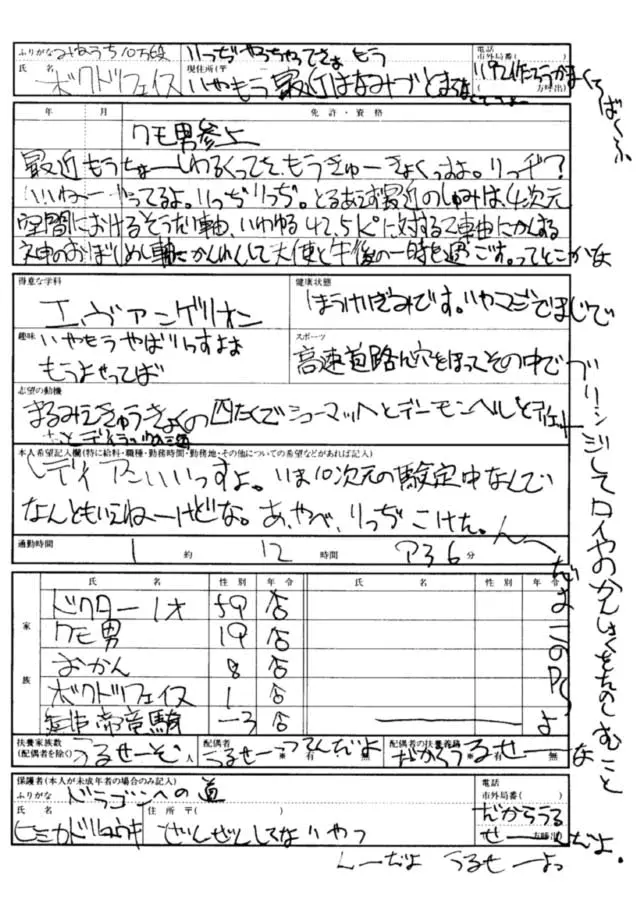 ふりがな みねうち10万段
りっぢやっちゃってさぁ もう
電話
市外局番( )
氏 名 ボクドフェイス
現住所(〒
いやもう最近はなみづとまらなくてさー
( 方呼出)
年 月 免 許・資 格
クモ男参上
最近もうちょーしわるくってさ、もうきゅーきょくっすよ。りっヂ?
いいねー やってるよ。りっぢりっぢ。とるあえず最近のしゅみは4次元
空間におけるそうたい軸、いわゆる42.5kpに対するZ軸にかんする
ネ申のおぼしめし軸にかんしくして天使と午後の一時を過ごす。ってとこかな
得意な学科
エヴァンゲリオン
健康状態
ほうけいぎみです。いやマジでまじで
趣味 いやもうやばいっすよぉ
もうよせってば
スポーツ
高速道路に穴をほってその中で
ブリッジしてロイヤのかんしょくをたのしむこと
志望の動機
まるみえきゅうきょくの四たくでシューマッハとデーモンヘルどティ
本人希望記入欄(特に給料・職種・勤務時間・勤務地・その他についての希望などがあれば記入)
レディアンいいっすよ。いま10次元の験定中なんでい
なんともいえねーけどな。あ、やべ、りっぢこけた。んー
通勤時間 1 約 12 時間 ア36 分
氏 名 性 別 年 令 氏 名 性 別 年 令
家
族
ドクター1才 59 店
クモ男 19 店
おかん 8 店
ボクドフェイス 1 店
海帝竜騎 ー3 店
だよこのPCよ
扶養家族数
(配偶者を除く) うるせーぞ 人
配偶者
うるせーつうんだよ
有 無
配偶者の扶養義務
だからうるせーな
有 無
保護者(本人が未成年者の場合のみ記入)
ふりがな ドラゴンへの道
電話
市外局番( )
氏 名 ヒミカドリュウキ
住 所 〒( )
ぜんぜんしてないやつ
だからうる
せーんだよ。
方呼出)
んーだよ うるせーよっ